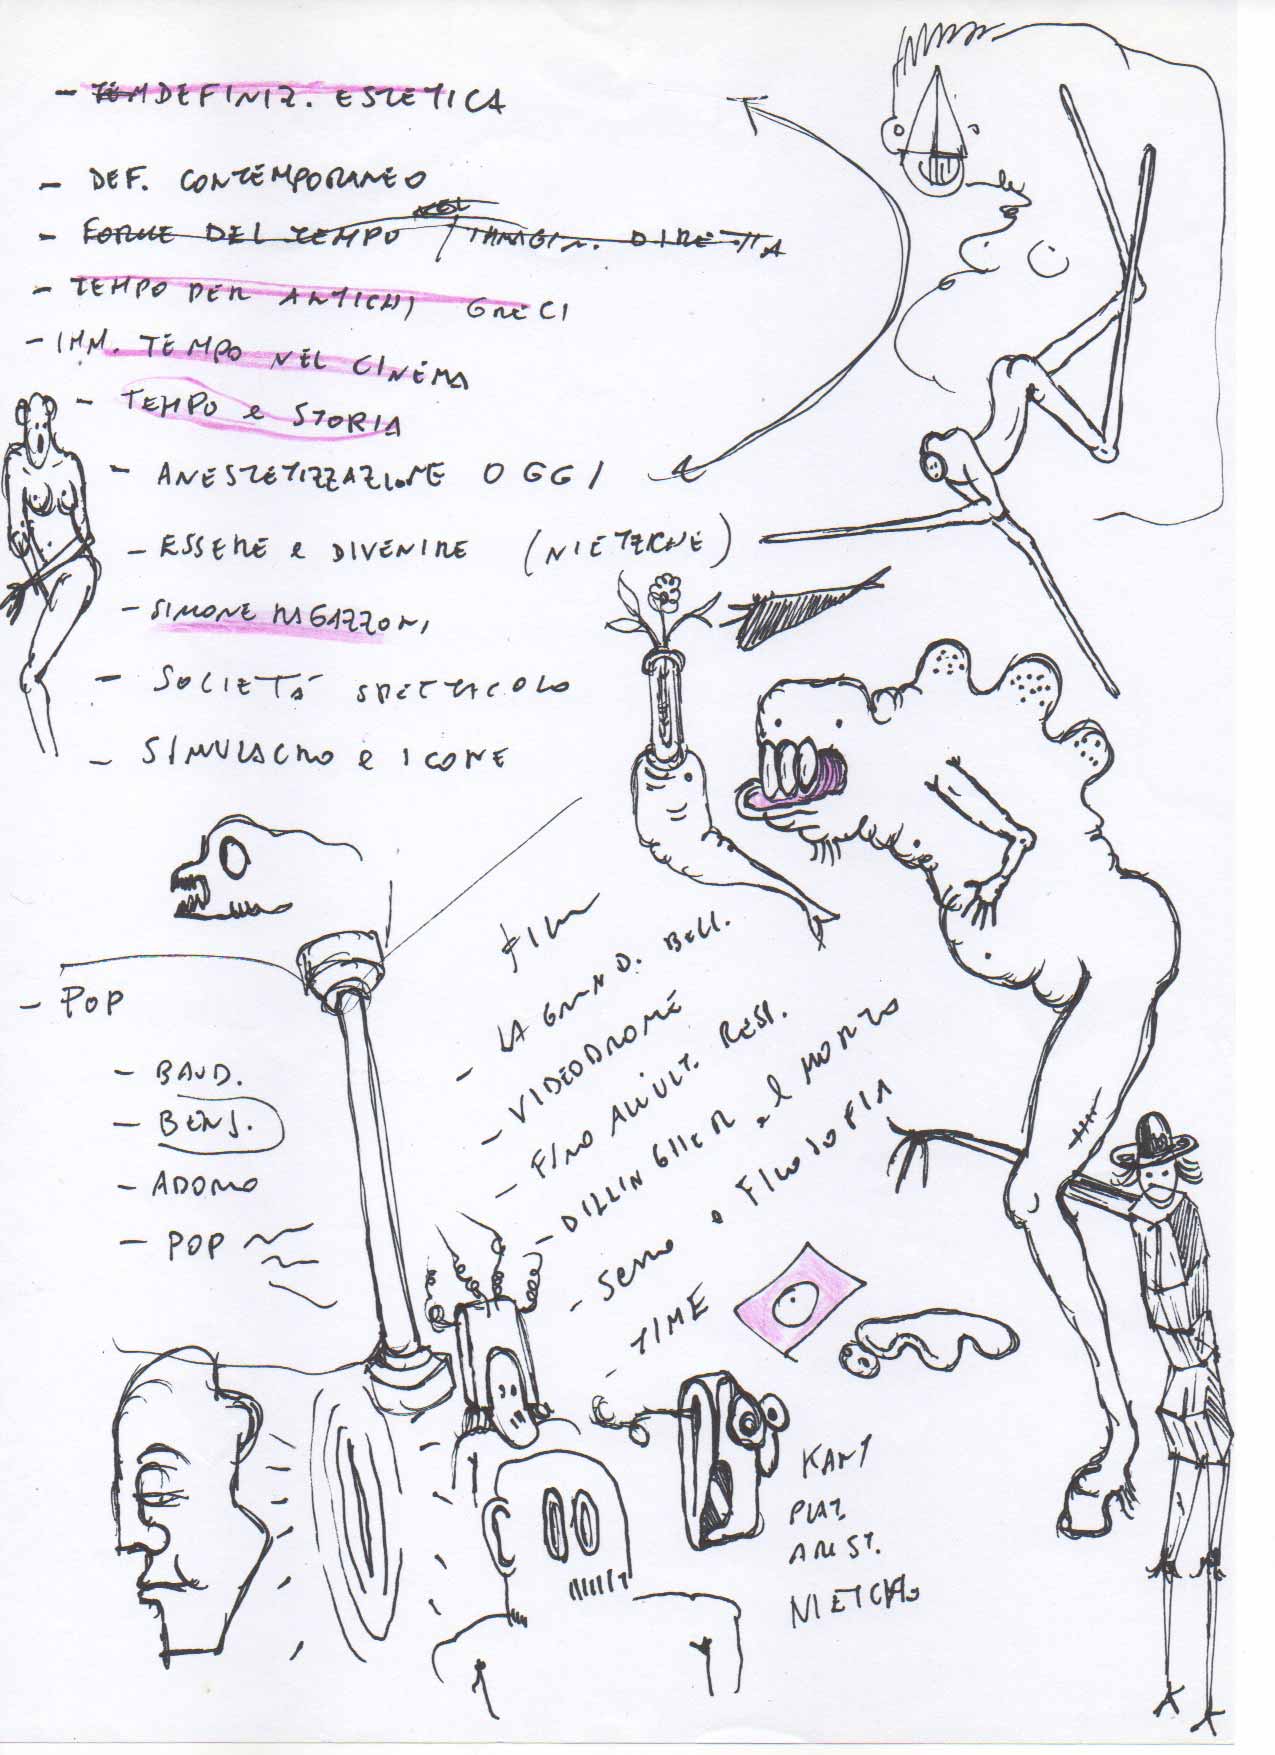 - DEFINIZ. ESTETICA
- DEF. CONTEMPORANEO
- FORME DEL TEMPO / NEL IMMAGIN. DIRETTA
- TEMPO PER ANTICHI GRECI
- IMM. TEMPO NEL CINEMA
- TEMPO e STORIA
- ANESTETIZZAZIONE OGGI
- ESSERE e DIVENIRE (NIETZCHE)
- SIMONE RAGAZZONI
- SOCIETÀ SPETTACOLO
- SIMULACRO e ICONE
- POP
- BAUD.
- BENJ.
- ADORNO
- POP
FILM
- LA GRAND. BELL.
- VIDEODROME
- FINO ALL'ULT. RESP.
- DILLINGER e MORTO
- Senso e FILOSOFIA
- TIME
KANT
PLAT.
ARIST.
NIETCHE